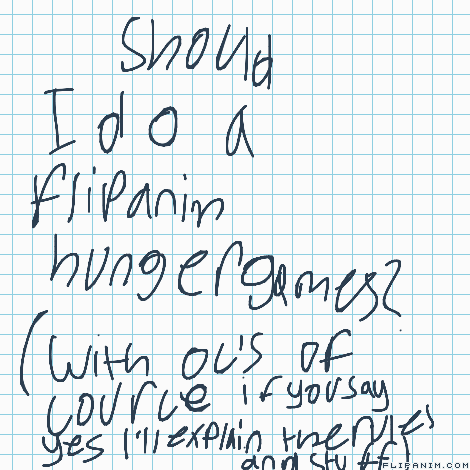 Should
I do a
flipanim
hungergames?
(with oc's of
cource if you say
yes I'll explain the rules
and stuff)
FLIPANIM.COM